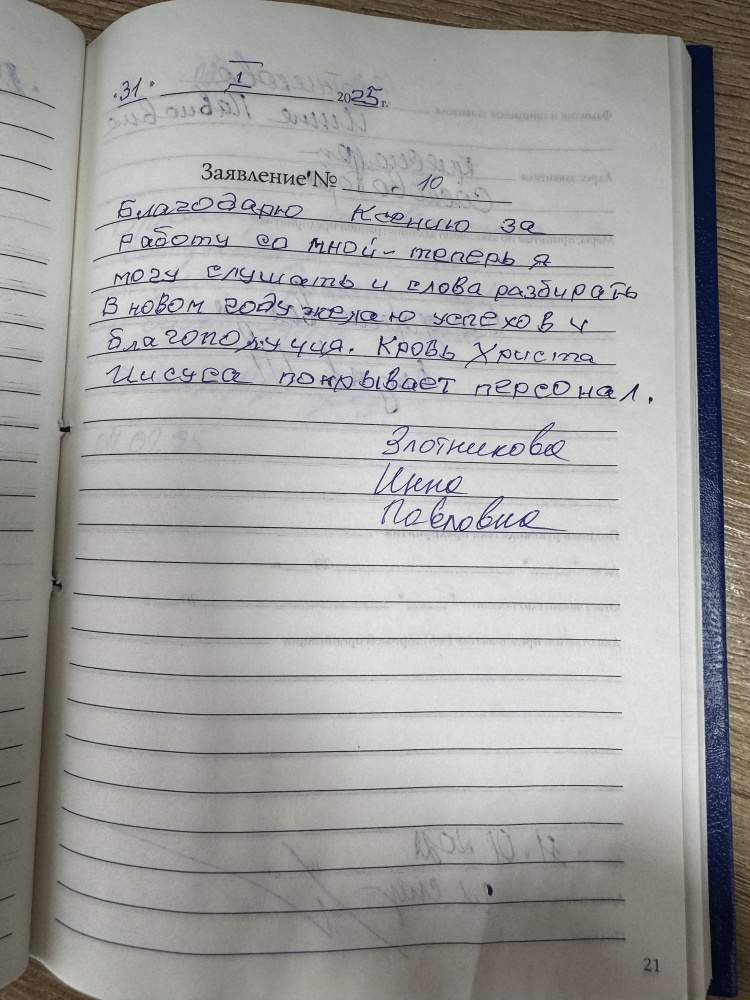 "31" 1 2025 г.
Заявление № 10
Благодарю Ксению за
работу со мной - теперь я
могу слушать и слова разбирать
В новом году желаю успехов и
благополучия. Кровь Христа
Иисуса покрывает персонал.
Злотникова
Инна
Павловна
21